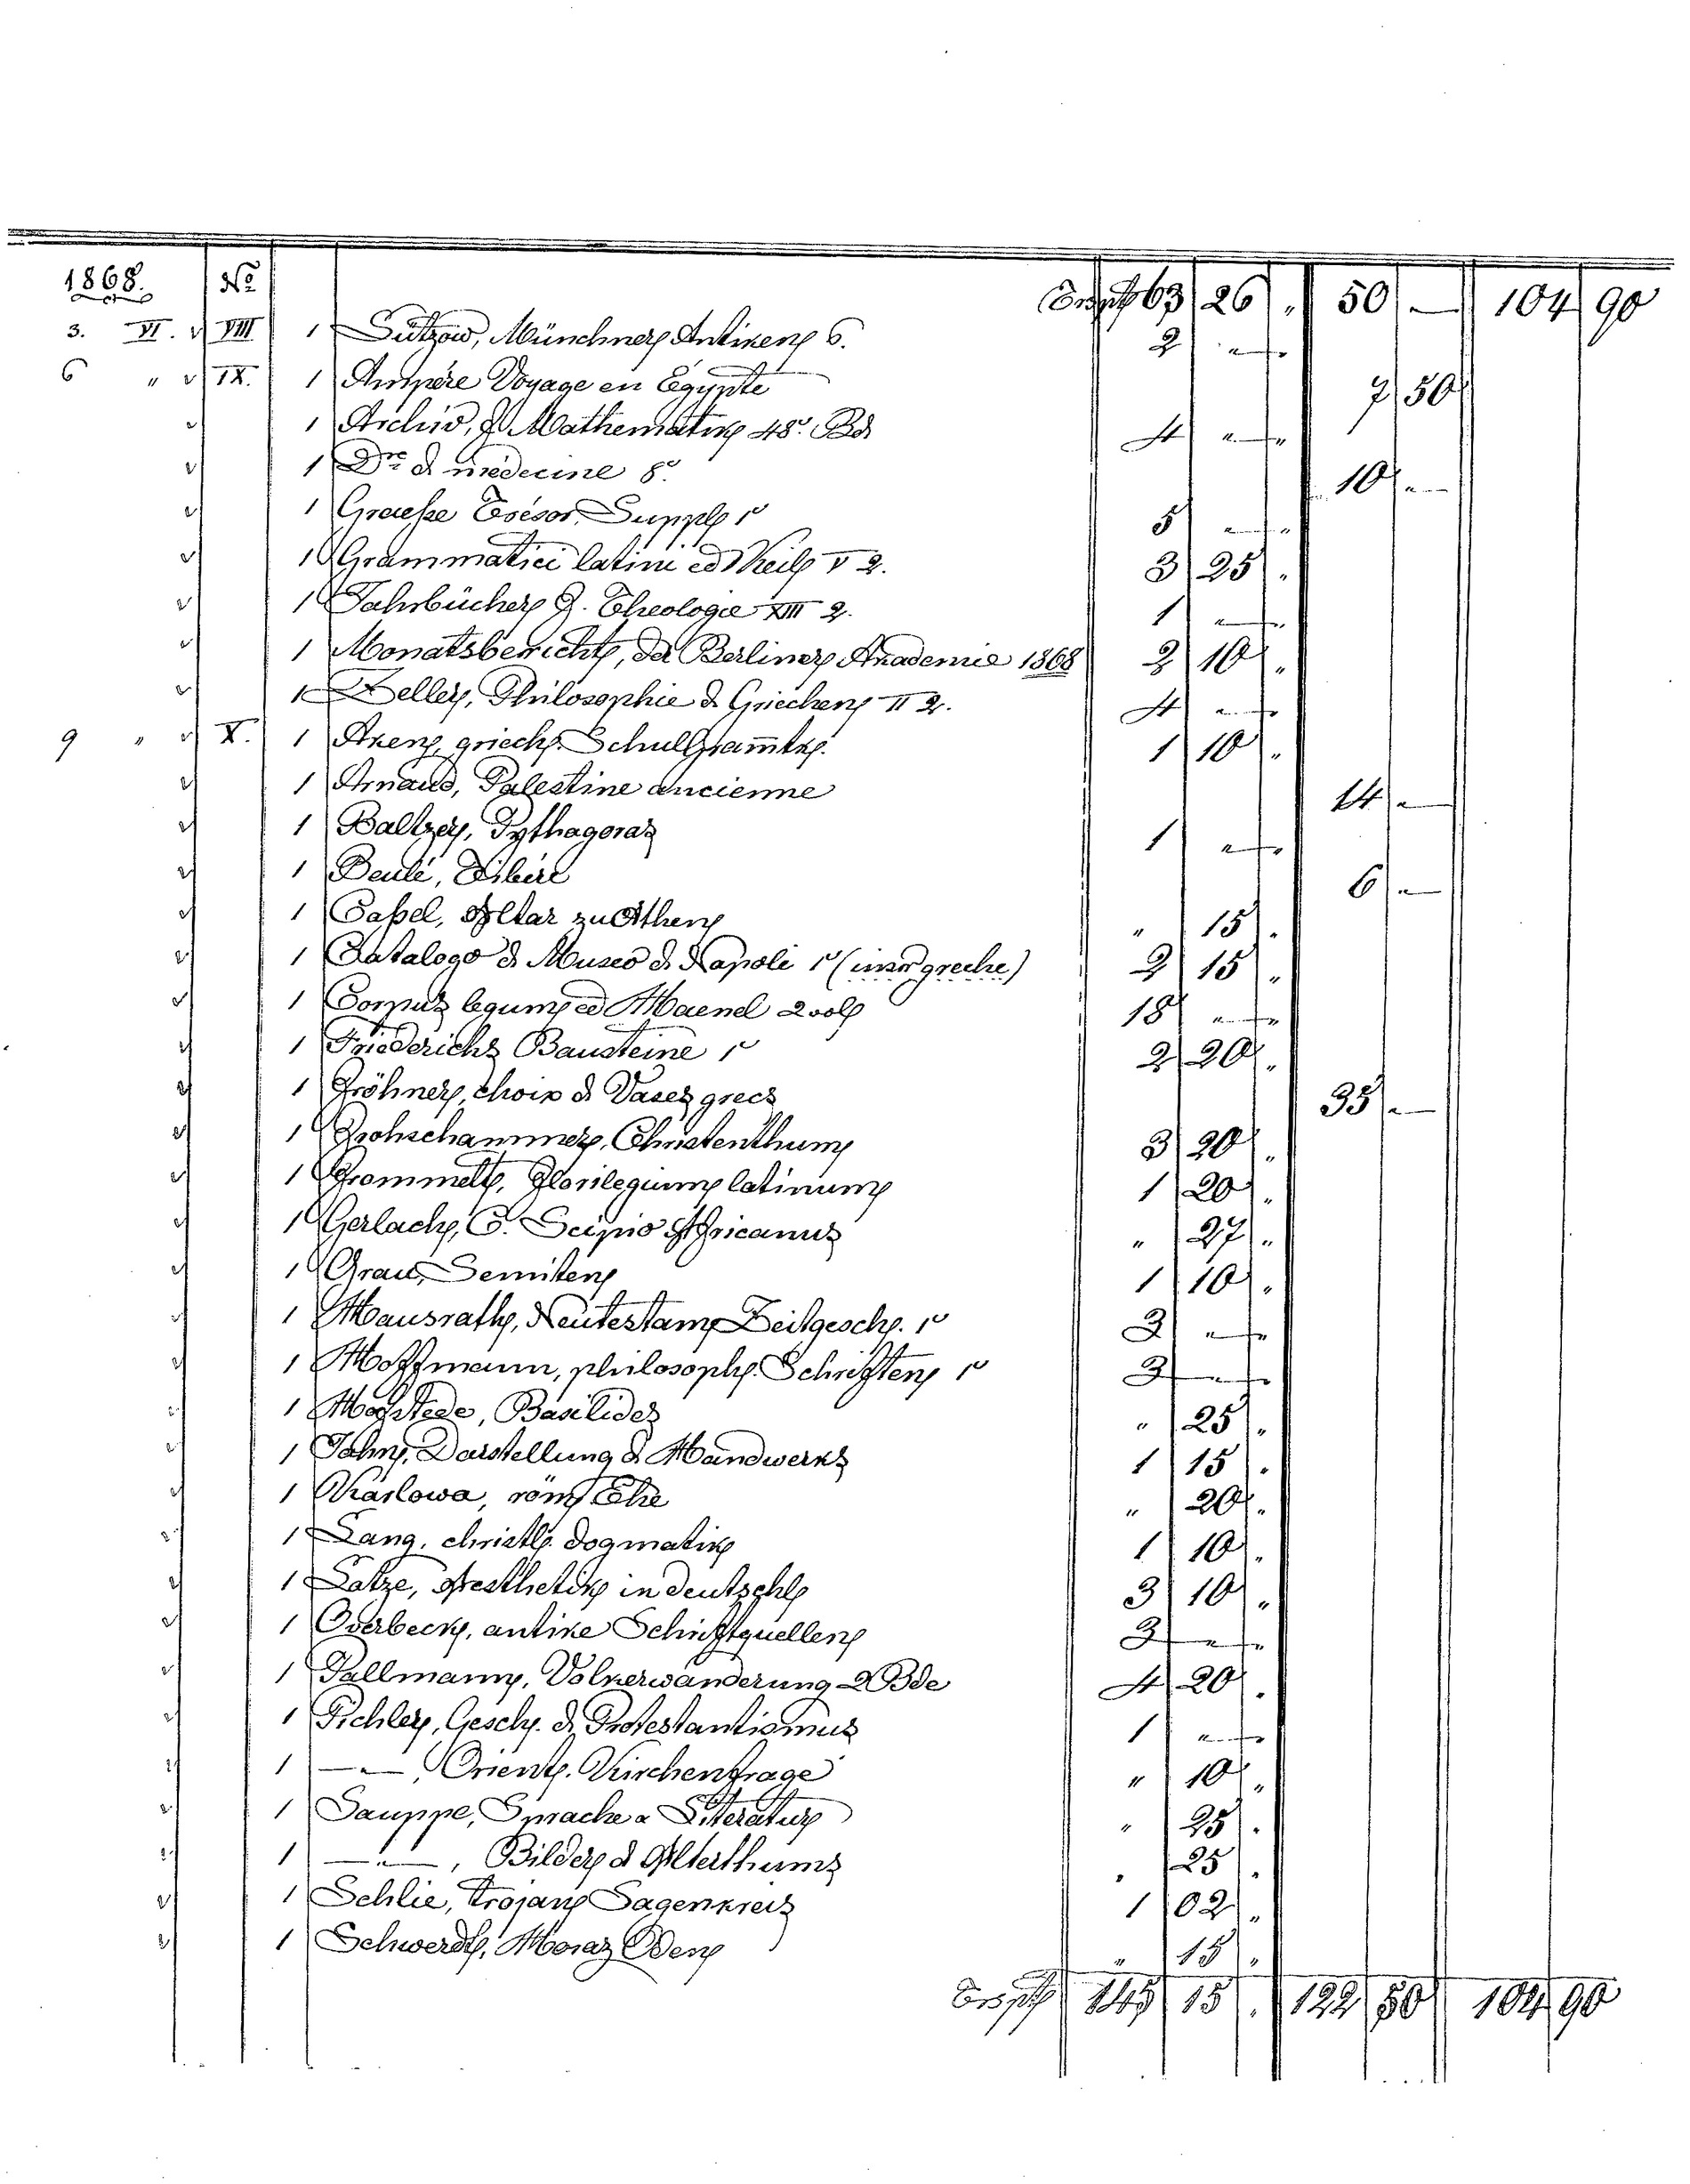 1868. No 63 26 . 50 — 104 90
3. VI. v VIII 1 Lützow, Münchner Antiken 6. 2 „ — „
6 „ v IX. 1 Ampère Voyage en Egypte 7 50
v 1 Archiv, d Mathematik 48r Bd 4 „ — „
v 1 Do d medecine 8o 10 „ —
v 1 Graesse Trésor, Suppl 1r 5 „ — „
v 1 Grammatici latini ed Keil V 2. 3 25 .
v 1 Jahrbücher f. Theologie XIII 2. 1 „ — „
v 1 Monatsbericht, der Berliner Akademie 1868 2 10 .
v 1 Zeller, Philosophie d Griechen II 2. 4 „ — „
9 „ v X. 1 Aken, griech. SchulGram̄tk. 1 10 .
v 1 Arnaud, Palestine ancienne 14 „ —
v 1 Baltzer, Pythagoras 1 „ — „
v 1 Beulé, Tibère 6 „ —
v 1 Altar zu Athen „ 15 .
v 1 Catalogo d Museo d Napoli 1r (greche) 2 15 „
v 1 Corpus legum ed Haenel 2 vol 18 „ — „
v 1 Friederichs Bausteine 1r 2 20 „
v 1 Fröhner, choix d Vases grecs 35 „ —
v 1 Frohschammer, Christenthum 3 20 „
v 1 Frommelt, Florilegium latinum 1 20 „
v 1 Gerlach, P. Scipio Africanus „ 27 „
v 1 Grau, Semiten 1 10 „
v 1 Hausrath, Neutestam Zeitgesch. 1r 2 „ — „
v 1 Hoffmann, philosoph. Schriften 1r 2 „ — „
v 1 Hofstede, Basilides „ 25 „
v 1 Jahn, Darstellung d Handwerks 1 15 .
v 1 Karlowa, röm Ehe „ 20 .
v 1 Lang, christl. Dogmatik 1 10 .
v 1 Lotze, Aesthetik in deutschl 3 10 „
v 1 Overbeck, antike Schriftquellen 3 „ — „
v 1 Pallmann, Völkerwanderung 2 Bde 4 20 .
v 1 Pichler, Gesch. d Protestantismus 1 „ — „
v 1 — „ —, Orient. Kirchenfrage „ 10 „
v 1 Sauppe, Sprache & Literatur „ 25 .
v 1 — „ —, Bilder d Alterthums „ 25 .
v 1 Schlie, trojan Sagenkreis 1 02 „
v 1 Schwerdt, Horaz Oden „ 15 „
145 15 . 122 50 104 90